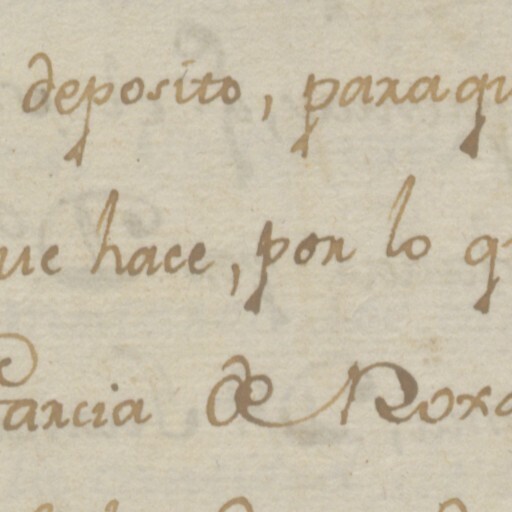 deposito, paraqu
ue hace, por lo qu
Garcia de Roxa